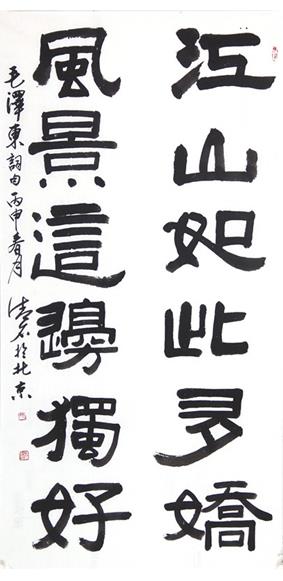 江山如此多嬌
風景這邊獨好
毛澤東詞句丙申春月清石於北京